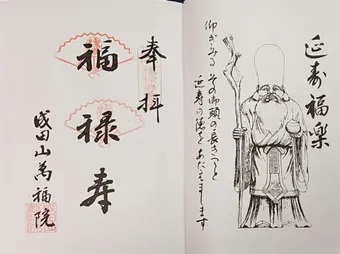 延寿福楽
仰ぎみる その御頭の長き
延寿の徳を あたえまします
奉拝
福禄寿
成田山萬福院